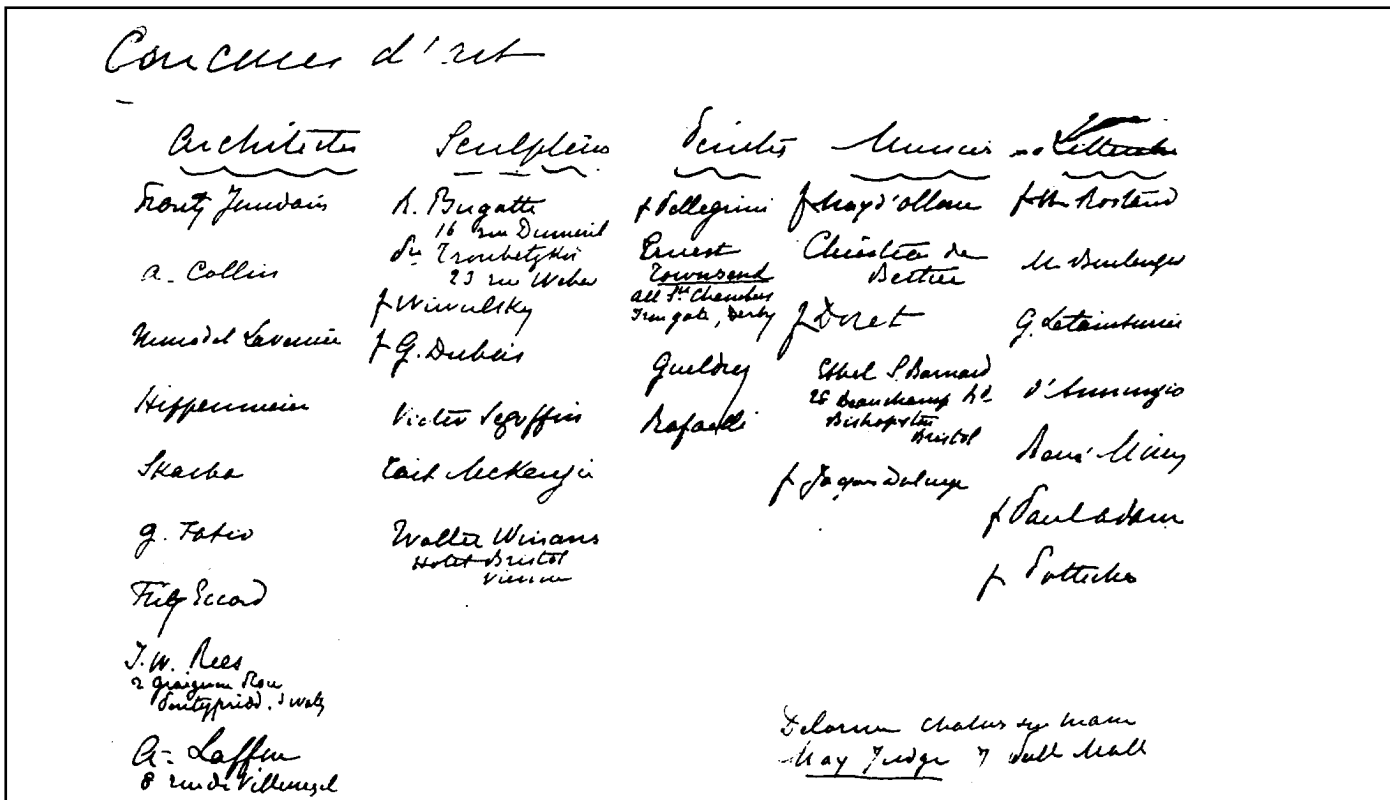 Concours d'art
Architectes
Frantz Jourdain
A. Collin
Laverrière
Hippenmeier
Skarba
G. Fatio
Fritz Eccard
J. W. Rees
2 Graigwen
Pontypridd. S Wales
A. Laffen
8 rue de Villersexel
Sculpteurs
R. Bugatti
16 rue Dumeril
Pce Troubetzkoi
23 rue Weber
f Wiwulsky
f G. Dubois
Victor Segoffin
Tait McKenzie
Walter Winans
Hotel Bristol
Vienne
Peintres
f Pellegrini
Ernest
Townsend
All Sts Chambers
Iron gate, Derby
Gueldry
Rafaelli
Musiciens
f May d'Ollone
de
Bertier
f Doret
Ethel S Barnard
26 Beauchamp Rd
Bishopston
Bristol
f Jaques Dalcroze
Littérature
f Mme Rostand
M. Boulenger
G. Letainturier
d'Annunzio
f Paul Adam
f Pottecher
Delorme Chalus sur
May Judge 7 Pall Mall